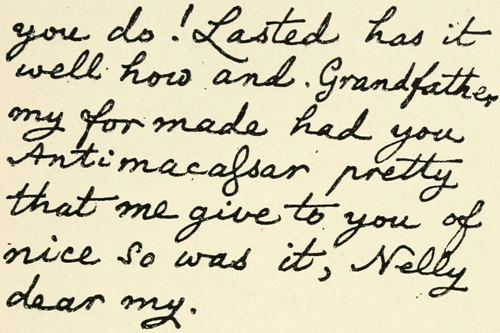 you do! Lasted has it
well how and. Grandfather
my for made had you
Antimacaſsar pretty
that me give to you of
nice so was it, Nelly
dear my.